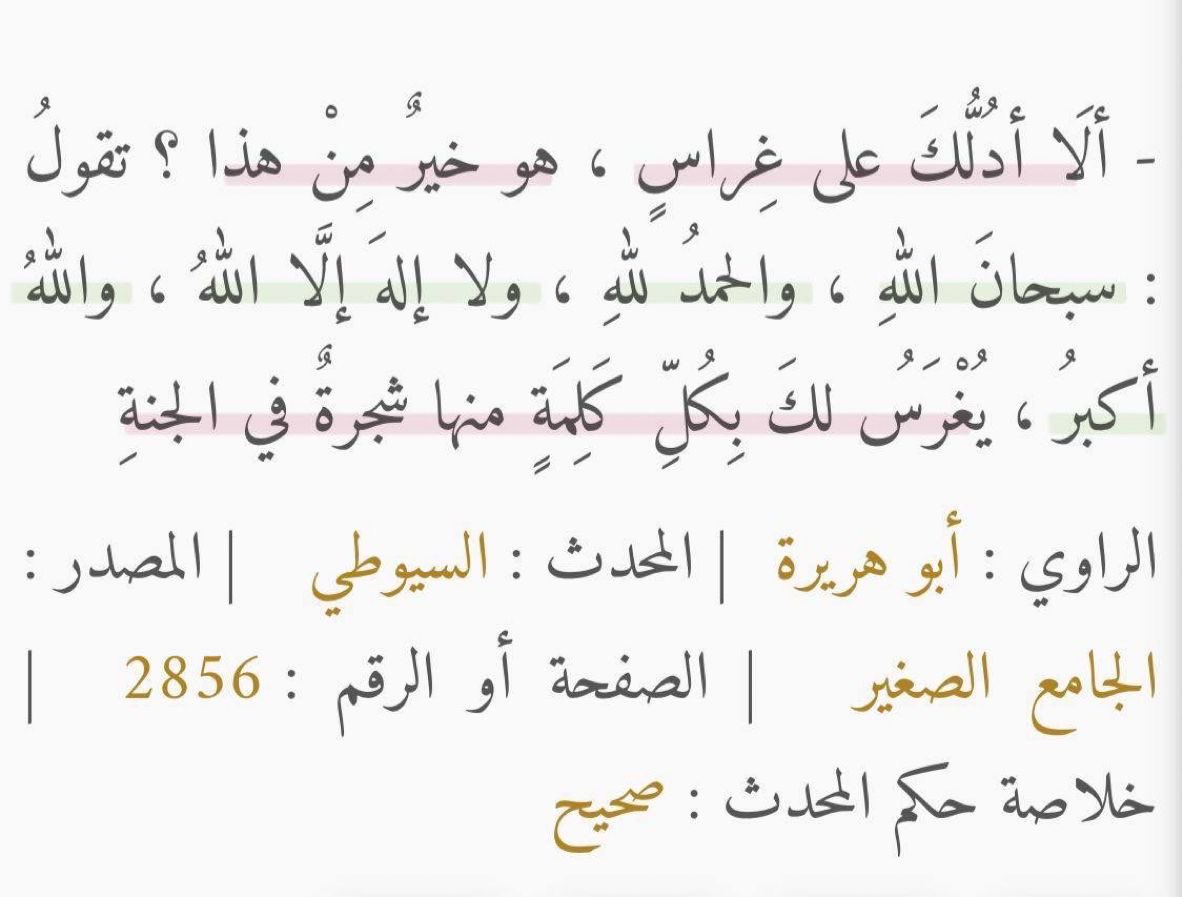 - ألَا أدُلُّكَ على غِراسٍ ، هو خيرٌ مِنْ هذا ؟ تقولُ
: سبحانَ اللهِ ، والحمدُ للهِ ، ولا إلهَ إلَّا اللهُ ، واللهُ
أكبرُ ، يُغْرَسُ لكَ بِكُلِّ كَلِمَةٍ منها شجرةٌ في الجنةِ
الراوي : أبو هريرة | المحدث : السيوطي | المصدر :
الجامع الصغير | الصفحة أو الرقم : 2856 |
خلاصة حكم المحدث : صحيح